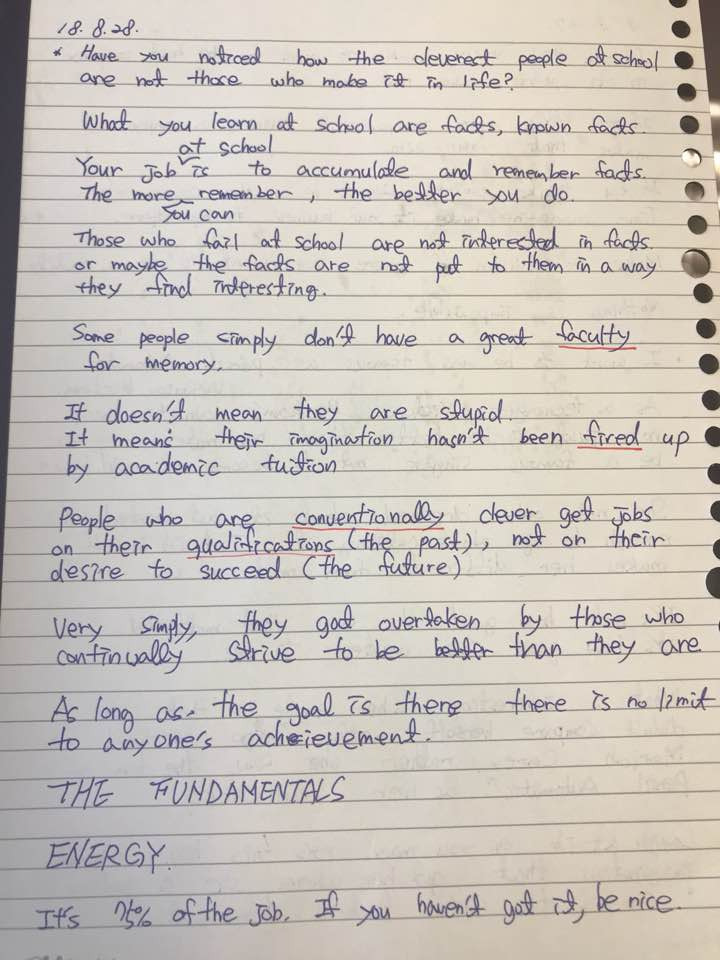 18. 8. 28.
* Have you noticed how the cleverest people at school
are not those who make it in life?
What you learn at school are facts, known facts.
at school
Your job is to accumulate and remember facts.
The more remember, the better you do.
you can
Those who fail at school are not interested in facts.
or maybe the facts are not put to them in a way
they find interesting.
Some people simply don't have a great faculty
for memory.
It doesn't mean they are stupid.
It means their imagination hasn't been fired up
by academic tuition
People who are conventionally clever get jobs
on their qualifications (the past), not on their
desire to succeed (the future)
Very simply, they got overtaken by those who
continually strive to be better than they are.
As long as the goal is there there is no limit
to anyone's achievement.
THE FUNDAMENTALS
ENERGY.
It's 75% of the job. If you haven't got it, be nice.